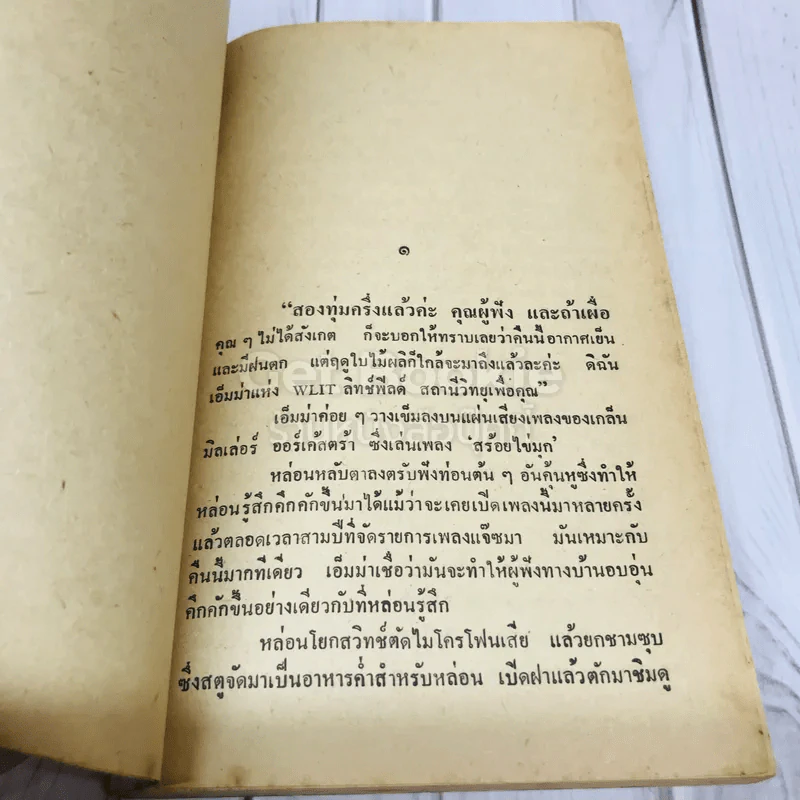 ๑
“สองทุ่มครึ่งแล้วค่ะ คุณผู้ฟัง และถ้าเผื่อ
คุณ ๆ ไม่ได้สังเกต ก็จะบอกให้ทราบเลยว่าคืนนี้อากาศเย็น
และมีฝนตก แต่ฤดูใบไม้ผลิก็ใกล้จะมาถึงแล้วละค่ะ ดิฉัน
เอ็มม่าแห่ง WLIT ลิทช์ฟีลด์ สถานีวิทยุเพื่อคุณ”
เอ็มม่าค่อย ๆ วางเข็มลงบนแผ่นเสียงเพลงของเกล็น
มิลเล่อร์ ออร์เค้สตร้า ซึ่งเล่นเพลง ‘สร้อยไข่มุก’
หล่อนหลับตาลงตรับฟังท่อนต้น ๆ อันคุ้นหูซึ่งทำให้
หล่อนรู้สึกคึกคักขึ้นมาได้แม้ว่าจะเคยเปิดเพลงนี้มาหลายครั้ง
แล้วตลอดเวลาสามปีที่จัดรายการเพลงแจ๊ซมา มันเหมาะกับ
คืนนี้มากทีเดียว เอ็มม่าเชื่อว่ามันจะทำให้ผู้ฟังทางบ้านอบอุ่น
คึกคักขึ้นอย่างเดียวกับที่หล่อนรู้สึก
หล่อนโยกสวิทช์ตัดไมโครโฟนเสีย แล้วยกชามซุบ
ซึ่งสตูจัดมาเป็นอาหารค่ำสำหรับหล่อน เปิดฝาแล้วตักมาชิมดู